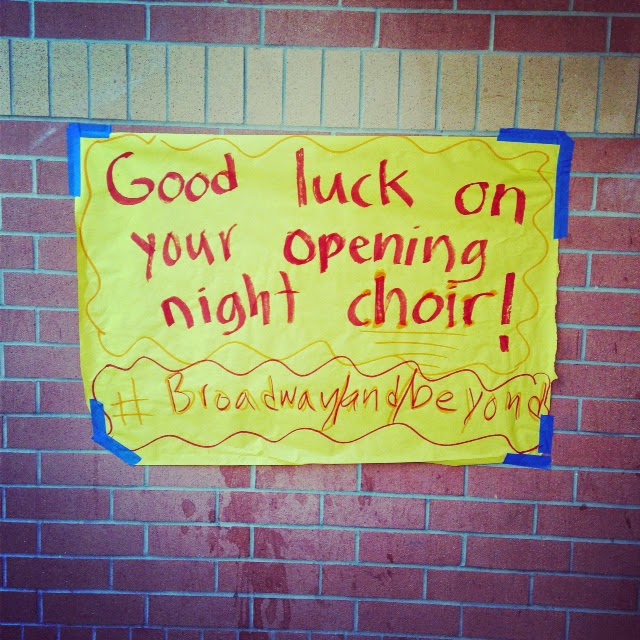 Good luck on
your opening
night choir!
#Broadway/and/beyond